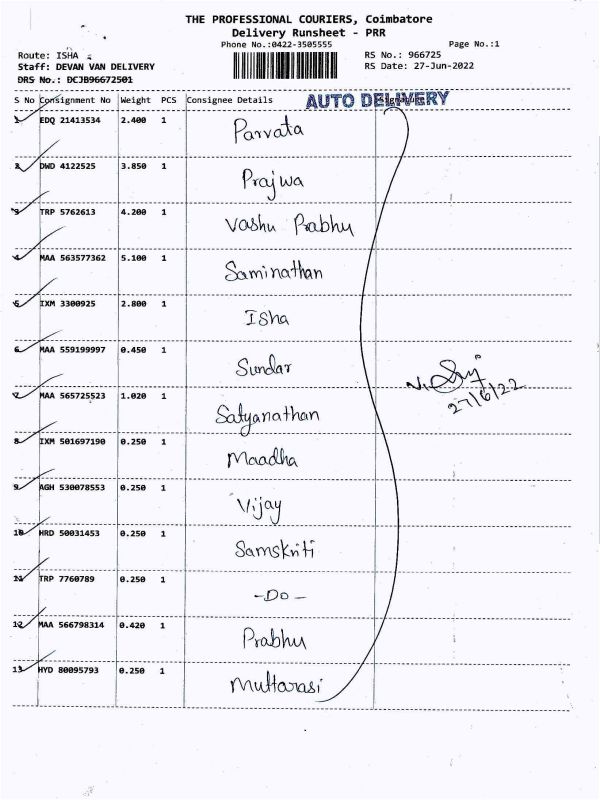 THE PROFESSIONAL COURIERS, Coimbatore
Delivery Runsheet - PRR
Phone No.:0422-3505555 Page No.:1
Route: ISHA RS No.: 966725
Staff: DEVAN VAN DELIVERY RS Date: 27-Jun-2022
DRS No.: DCJB96672501
S No Consignment No Weight PCS Consignee Details AUTO DELIVERY
1 EDQ 21413534 2.400 1 Parvata
2 DWD 4122525 3.850 1 Prajwa
3 TRP 5762613 4.200 1 Vashu Prabhu
4 MAA 563577362 5.100 1 Saminathan
5 IXM 3300925 2.800 1 Isha
6 MAA 559199997 0.450 1 Sundar
7 MAA 565725523 1.020 1 Satyanathan
27/6/22
8 IXM 501697190 0.250 1 Maadha
9 AGH 530078553 0.250 1 Vijay
10 HRD 50031453 0.250 1 Samskriti
11 TRP 7760789 0.250 1 -Do-
12 MAA 566798314 0.420 1 Prabhu
13 HYD 80095793 0.250 1 Muttarasi